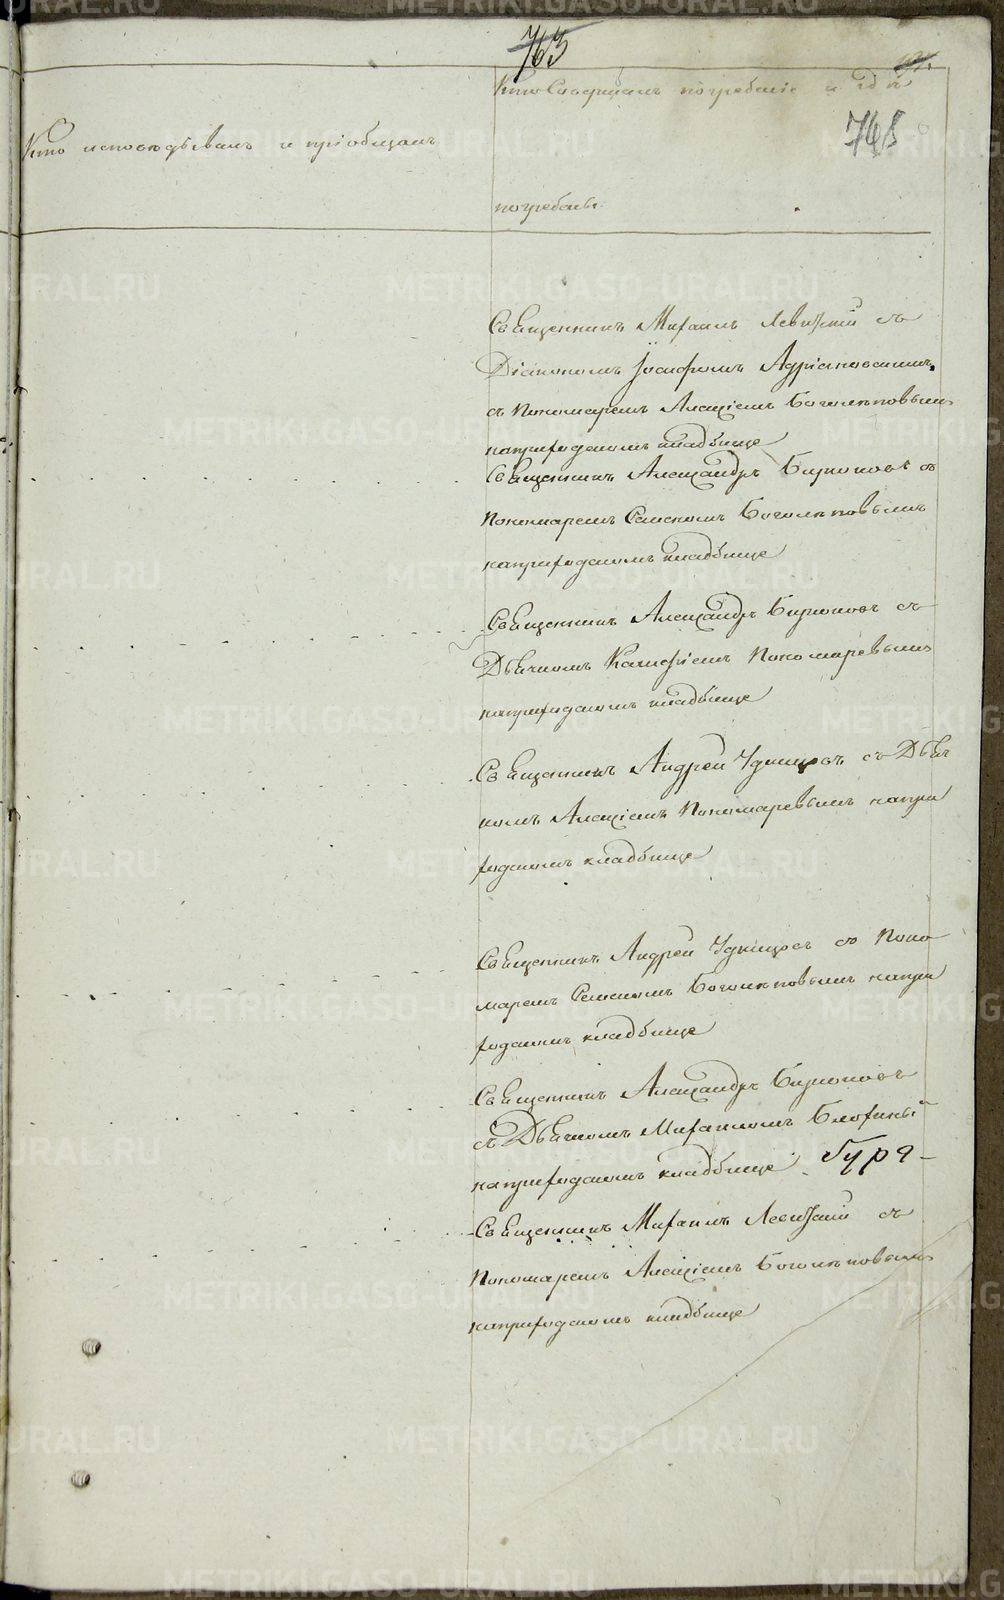 763
748
Кто исповѣдывалъ и пріобщалъ
Кто Совершалъ погребеніе и гдѣ
погребены
Священникъ Михаилъ Левитскій съ
Діакономъ Іосифомъ Адріановскимъ,
съ Пономаремъ Алексіемъ Боголѣповымъ
на приходскомъ кладбище
Священникъ Александръ Бирюковъ съ
Пономаремъ Симеономъ Боголѣповымъ
на приходскомъ кладбище
Священникъ Александръ Бирюковъ съ
Дьячкомъ Пономаревымъ
на приходскомъ кладбище
Священникъ Андрей Удинцовъ съ Дьяч
комъ Алексіемъ Пономаревымъ на при
ходскомъ кладбище
Священникъ Андрей Удинцовъ съ Поно
маремъ Симеономъ Боголѣповымъ на при
ходскомъ кладбище
Священникъ Александръ Бирюковъ
съ Дьячкомъ Михаиломъ
на приходскомъ кладбище Гуря
Священникъ Михаилъ Левитскій съ
Пономаремъ Алексіемъ Боголѣповымъ
на приходскомъ кладбище
METRIKI.GASO-URAL.RU